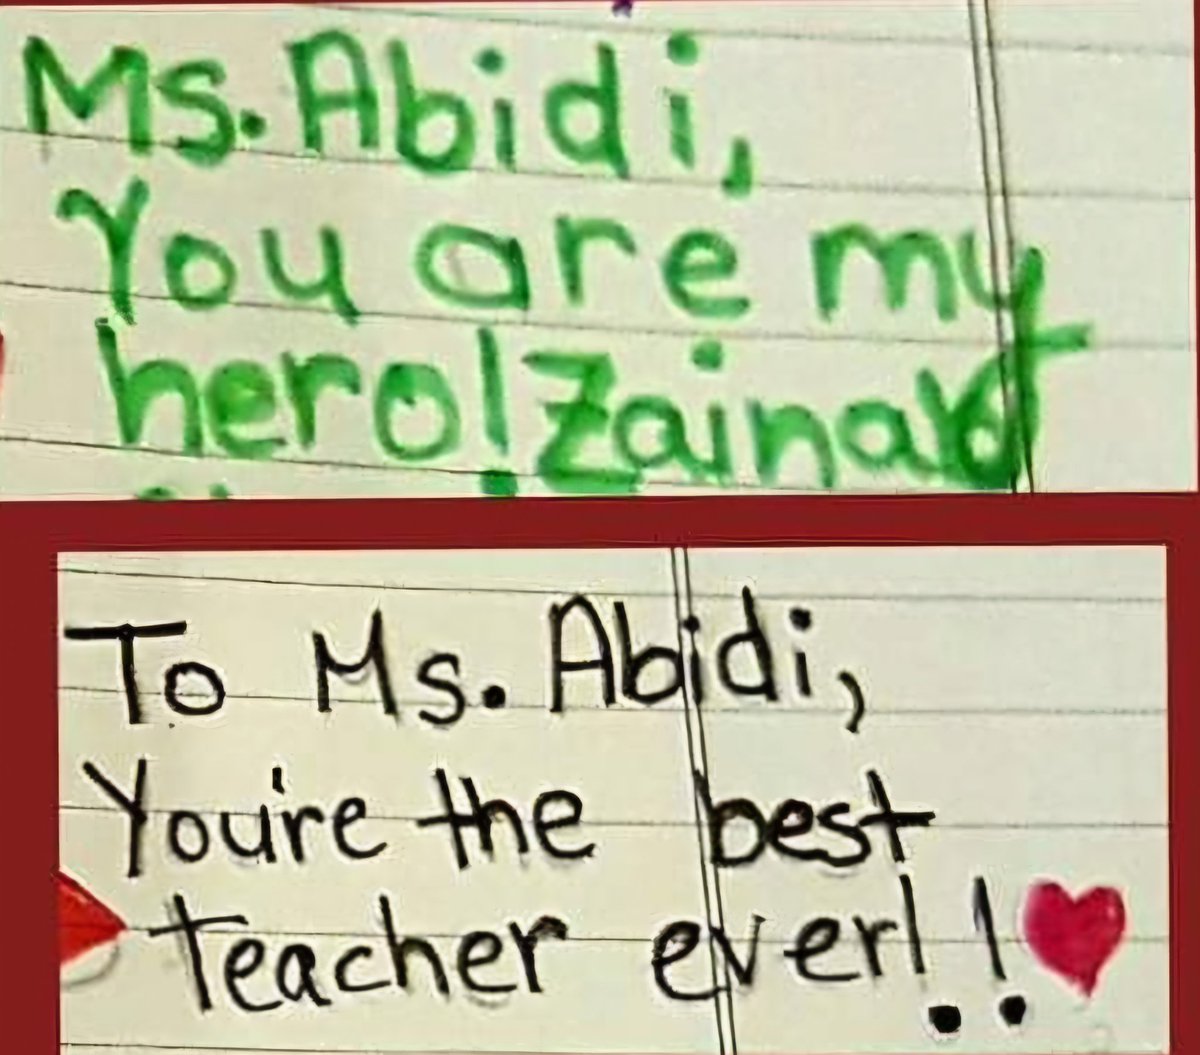 Ms. Abidi,
You are my
hero!
To Ms. Abidi,
You're the best
teacher ever!!